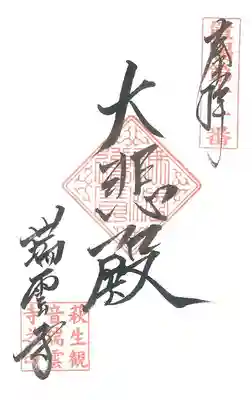 奉拝
大悲殿
瑞雲寺
萩生観
音瑞雲